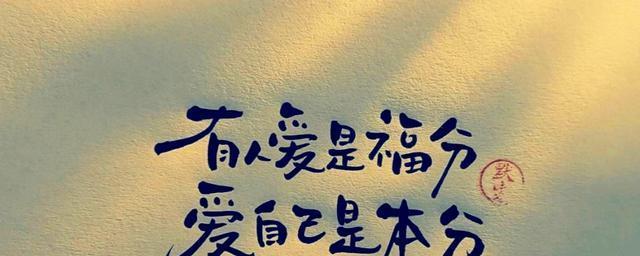 有人爱是福分
爱自己是本分